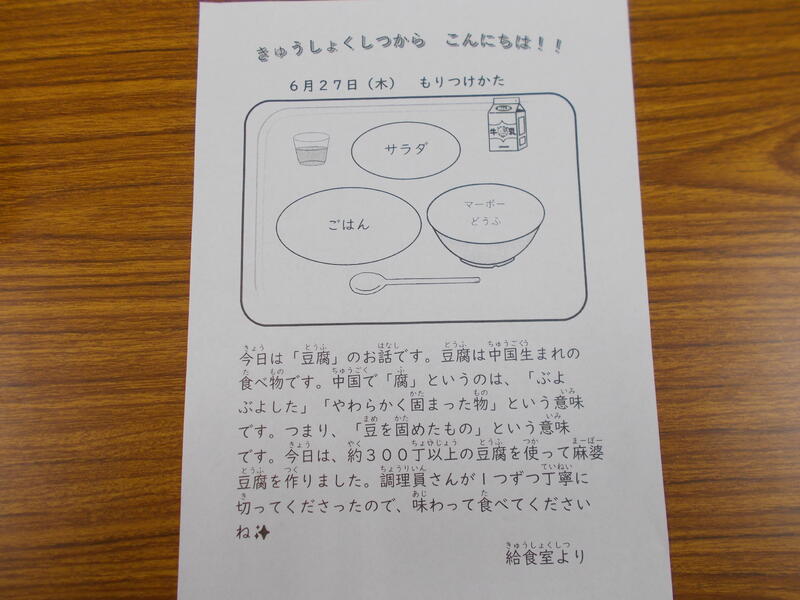 きゅうしょくしつから　こんにちは！！
６月２７日（木）　もりつけかた
サラダ
牛乳
ごはん
マーボー
どうふ
今日は「豆腐」のお話です。豆腐は中国生まれの
食べ物です。中国で「腐」というのは、「ぶよ
ぶよした」「やわらかく固まった物」という意味
です。つまり、「豆を固めたもの」という意味
です。今日は、約３００丁以上の豆腐を使って麻婆
豆腐を作りました。調理員さんが１つずつ丁寧に
切ってくださったので、味わって食べてください
ね
給食室より